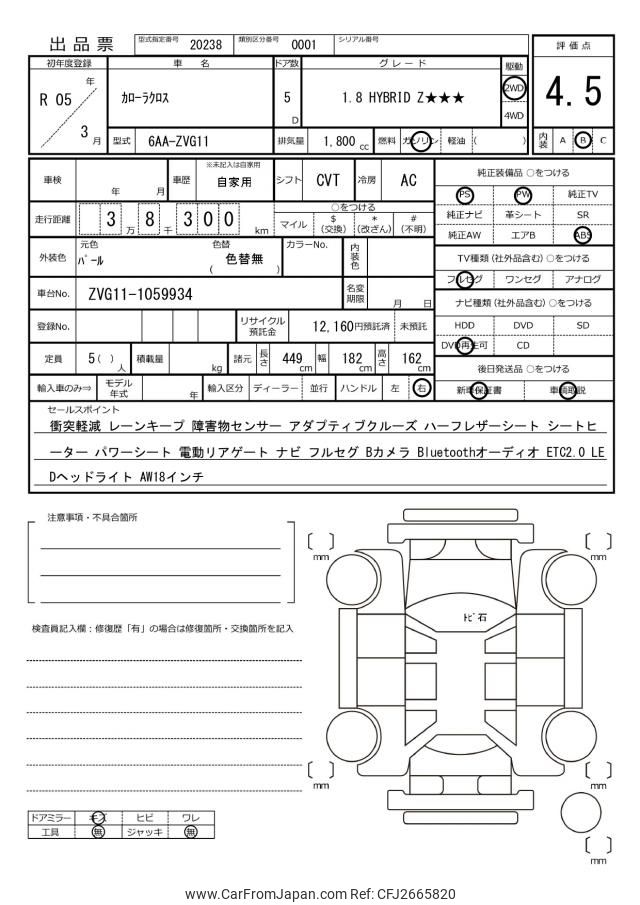 出品票 型式指定番号 20238 類別区分番号 0001 シリアル番号
評価点
4.5
初年度登録 車名 ドア数 グレード 駆動
R 05 年 3 月
カローラクロス 5 D 1.8 HYBRID Z★★★ 2WD 4WD
型式 6AA-ZVG11 排気量 1,800 cc 燃料 ガソリン 軽油 ( ) 内装 A B C
車検 年 月 車歴 ※未記入は自家用 自家用 シフト CVT 冷房 AC
走行距離 3 万 8 千 3 0 0 km
○をつける
マイル $ (交換) * (改ざん) # (不明)
外装色 元色 パール 色替 色替無 ( ) カラーNo. 内装色
車台No. ZVG11-1059934 名変期限 月 日
登録No. リサイクル預託金 12,160円預託済 未預託
定員 5( ) 人 積載量 kg 諸元 長さ 449 cm 幅 182 cm 高さ 162 cm
輸入車のみ⇒ モデル年式 年 輸入区分 ディーラー 並行 ハンドル 左 右
純正装備品 ○をつける
PS PW 純正TV
純正ナビ 革シート SR
純正AW エアB ABS
TV種類 (社外品含む) ○をつける
フルセグ ワンセグ アナログ
ナビ種類 (社外品含む) ○をつける
HDD DVD SD
DVD再生可 CD
後日発送品 ○をつける
新車保証書 車輌取説
セールスポイント
衝突軽減 レーンキープ 障害物センサー アダプティブクルーズ ハーフレザーシート シートヒ
ーター パワーシート 電動リアゲート ナビ フルセグ Bカメラ Bluetoothオーディオ ETC2.0 LE
Dヘッドライト AW18インチ
注意事項・不具合箇所
検査員記入欄：修復歴「有」の場合は修復箇所・交換箇所を記入
ドアミラー キズ ヒビ ワレ
工具 無 ジャッキ 無
[ ] mm
[ ] mm
トビ石
[ ] mm
[ ] mm
[ ] mm
www.CarFromJapan.com Ref: CFJ2665820